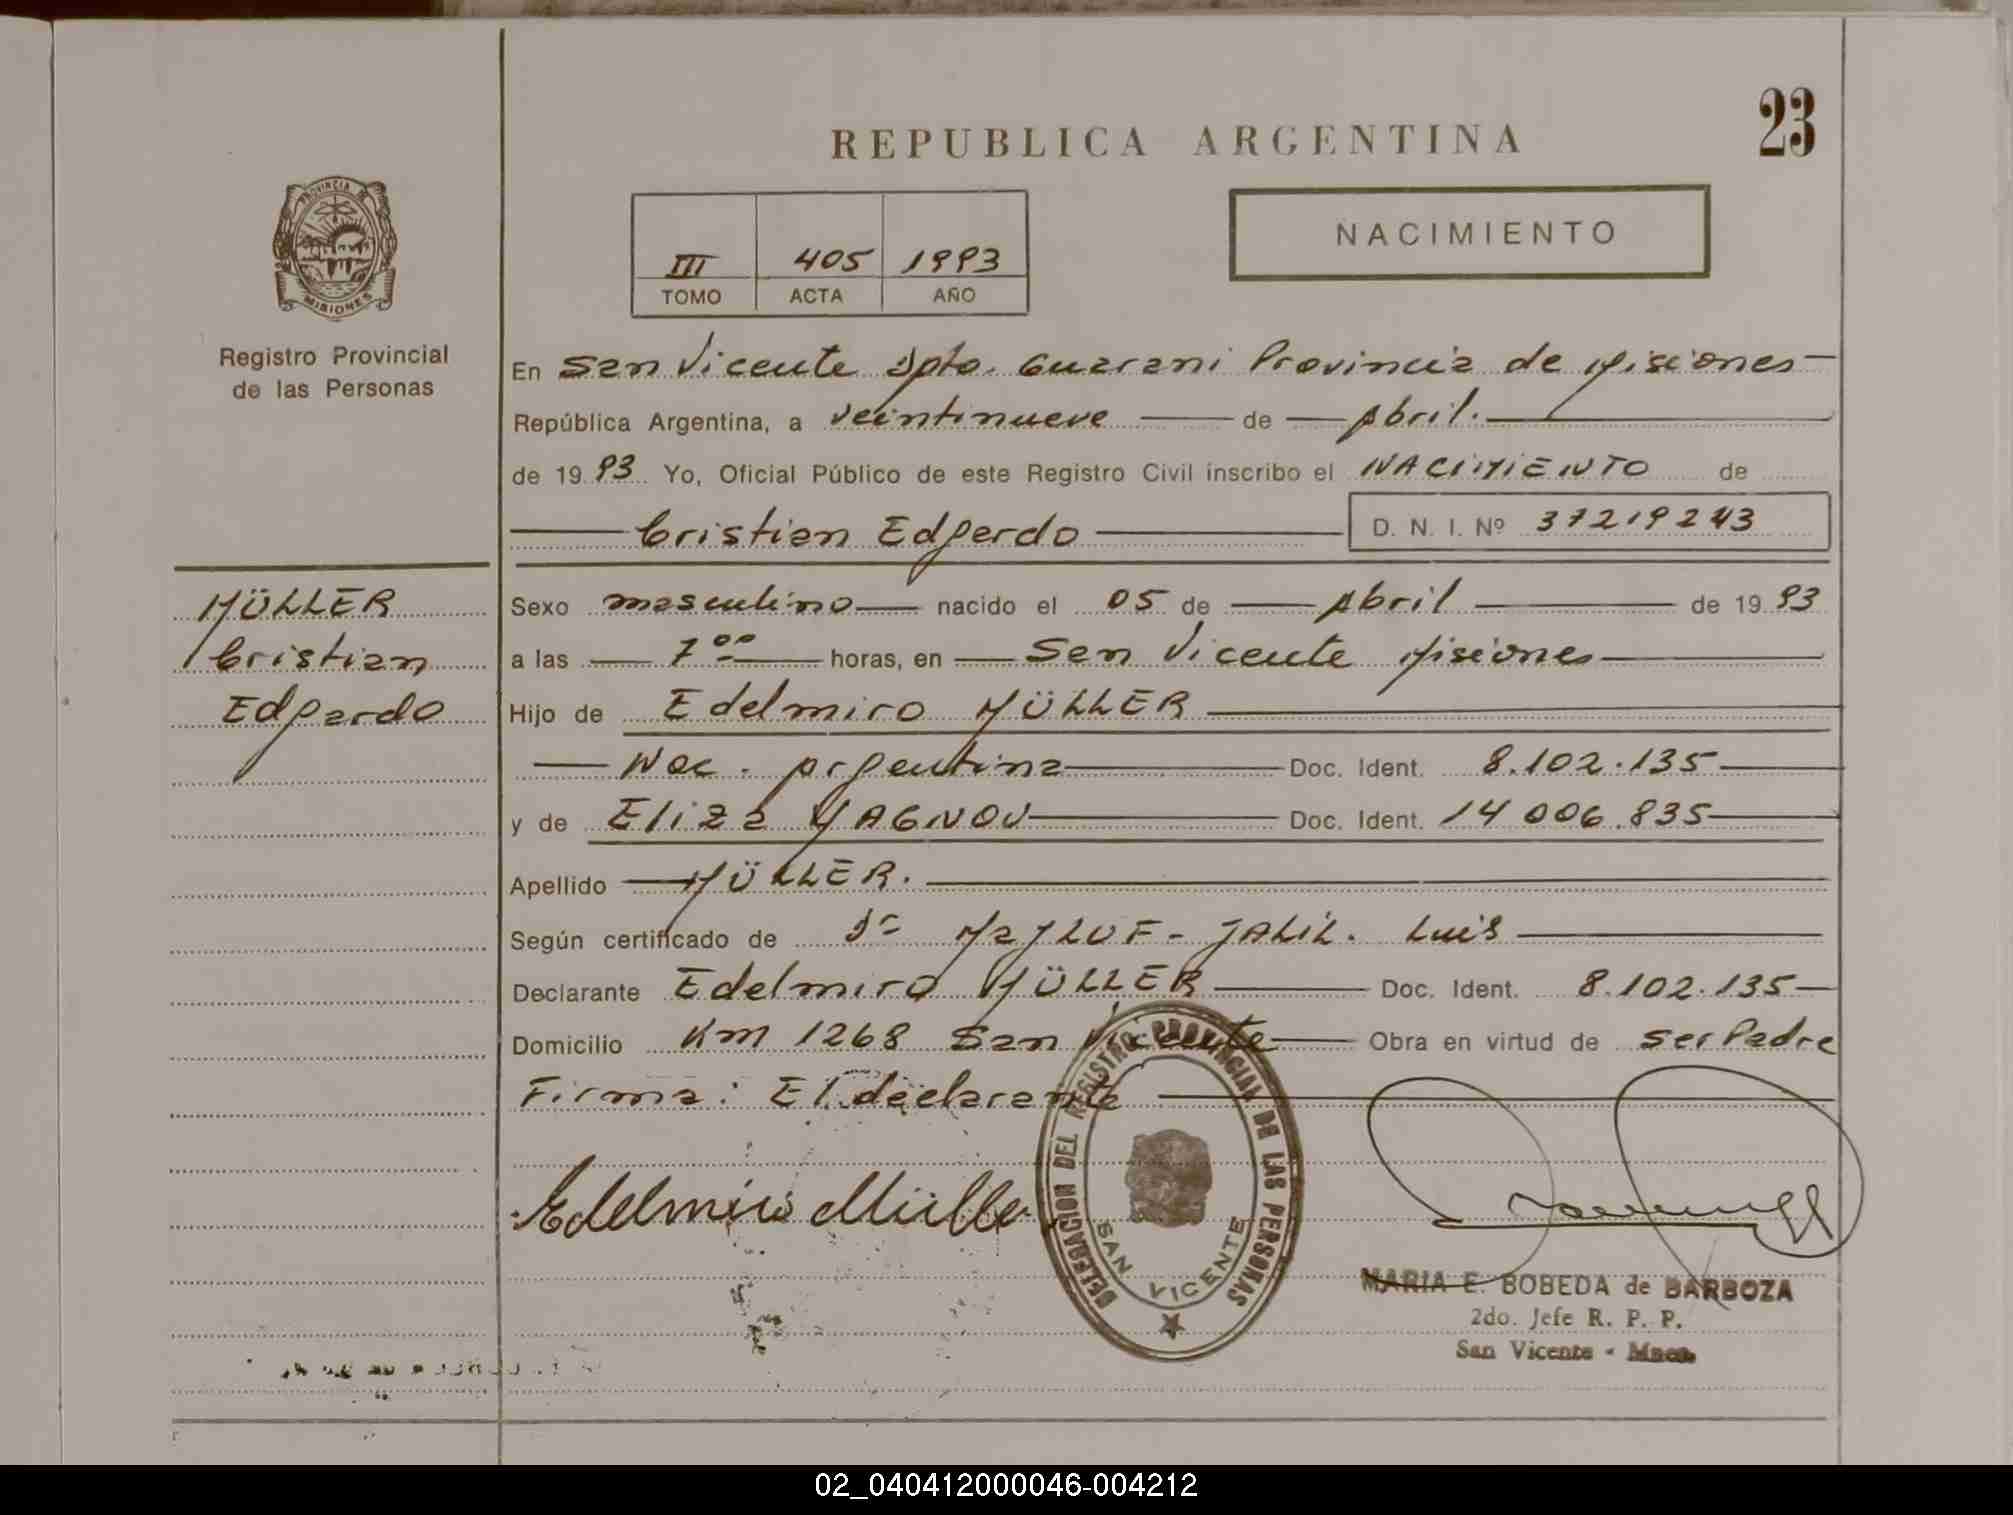 23
REPUBLICA ARGENTINA
NACIMIENTO
III 405 1993
TOMO ACTA AÑO
PROVINCIA DE
MISIONES
Registro Provincial
de las Personas
MÜLLER
Cristian
Edgardo
En San Vicente Dpto. Guarani Provincia de Misiones
República Argentina, a veintinueve de Abril.
de 19 93 Yo, Oficial Público de este Registro Civil inscribo el NACIMIENTO de
Cristian Edgardo D. N. I. Nº 37219243
Sexo masculino nacido el 05 de Abril de 19 93
a las 7ºº horas, en San Vicente Misiones
Hijo de Edelmiro MÜLLER
Nac. Argentina Doc. Ident. 8.102.135
y de Eliza MAGNOV Doc. Ident. 14 006.835
Apellido MÜLLER.
Según certificado de Dr MaJLUF - JALIL. Luis
Declarante Edelmiro MÜLLER Doc. Ident. 8.102.135
Domicilio Km 1268 San Vicente Obra en virtud de ser Padre
Firma: El declarante
Edelmiro Müller
DELEGACION DEL REGISTRO PROVINCIAL DE LAS PERSONAS
SAN VICENTE
MARIA E. BOBEDA de BARBOZA
2do. Jefe R. P. P.
San Vicente - Mnes.
02_040412000046-004212